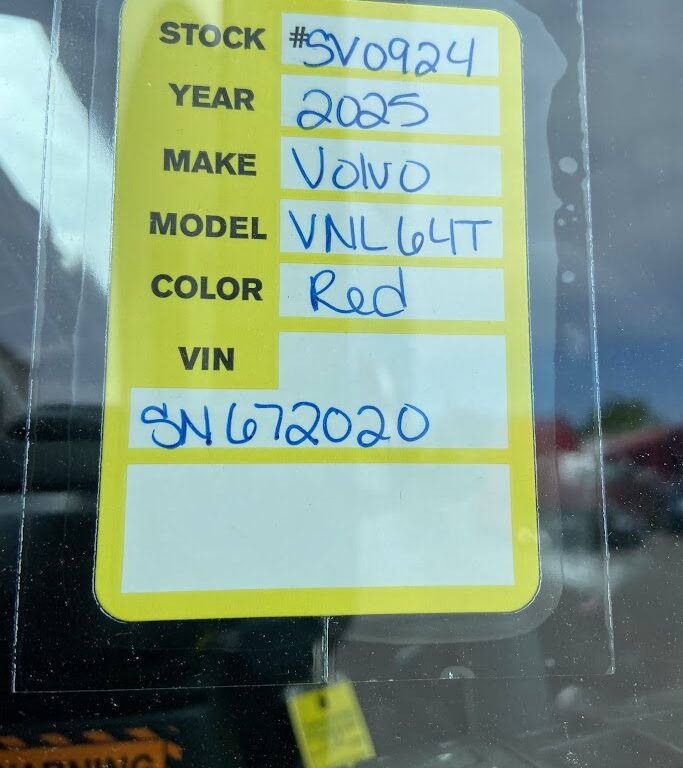 STOCK #SV0924
YEAR 2025
MAKE Volvo
MODEL VNL64T
COLOR Red
VIN
SN672020
WARNING